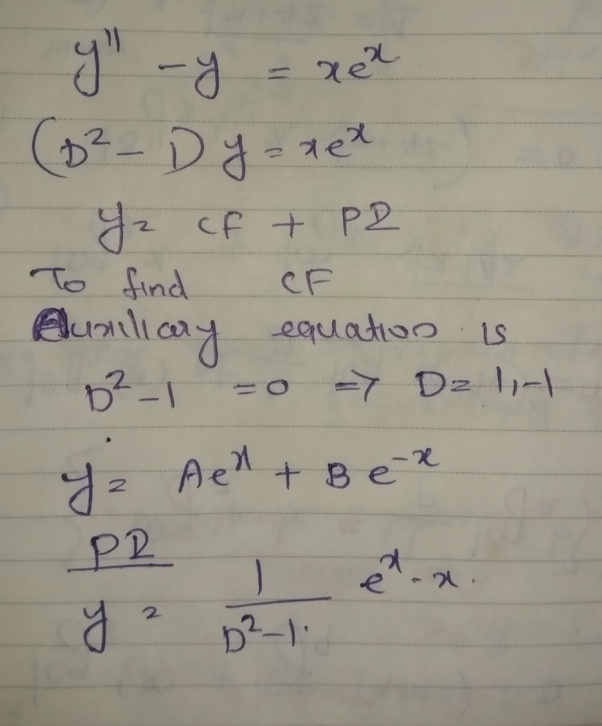 y'' - y = xe^x
(D² - 1) y = xe^x
y = CF + PI
To find CF
Auxiliary equation is
D² - 1 = 0 => D = 1, -1
y = Ae^x + Be^-x
PI
y = 1/(D² - 1) e^x · x.